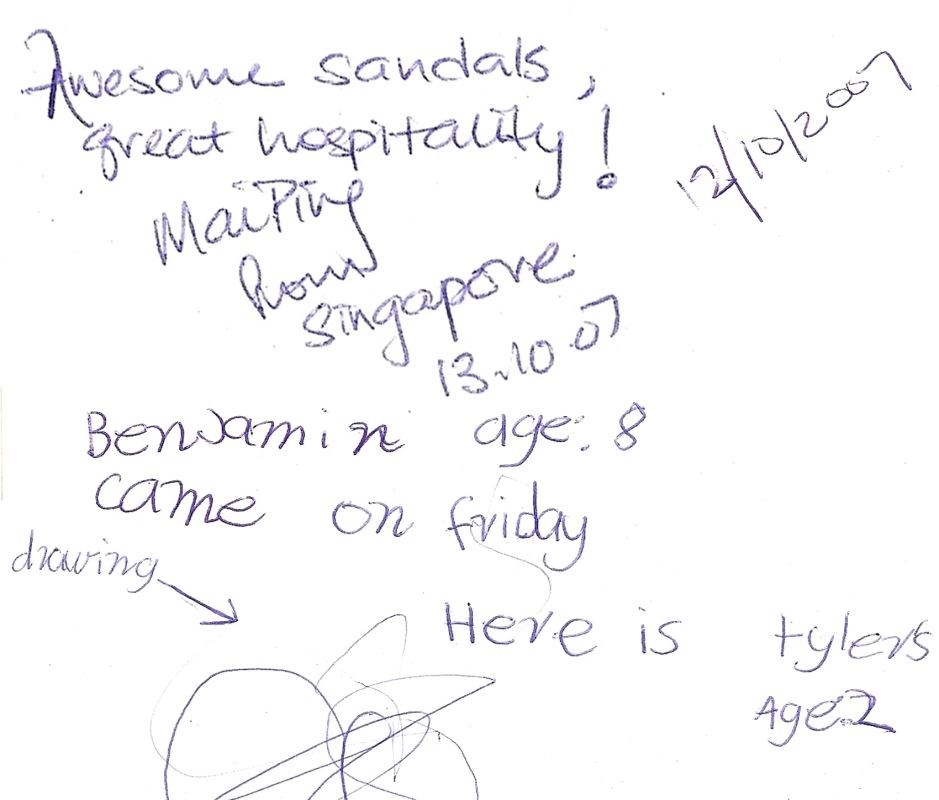 Awesome sandals,
great hospitality!
12/10/2007
MaiPing
from
Singapore
13.10.07
Benjamin age: 8
came on friday
drawing
Here is tylers
Age2